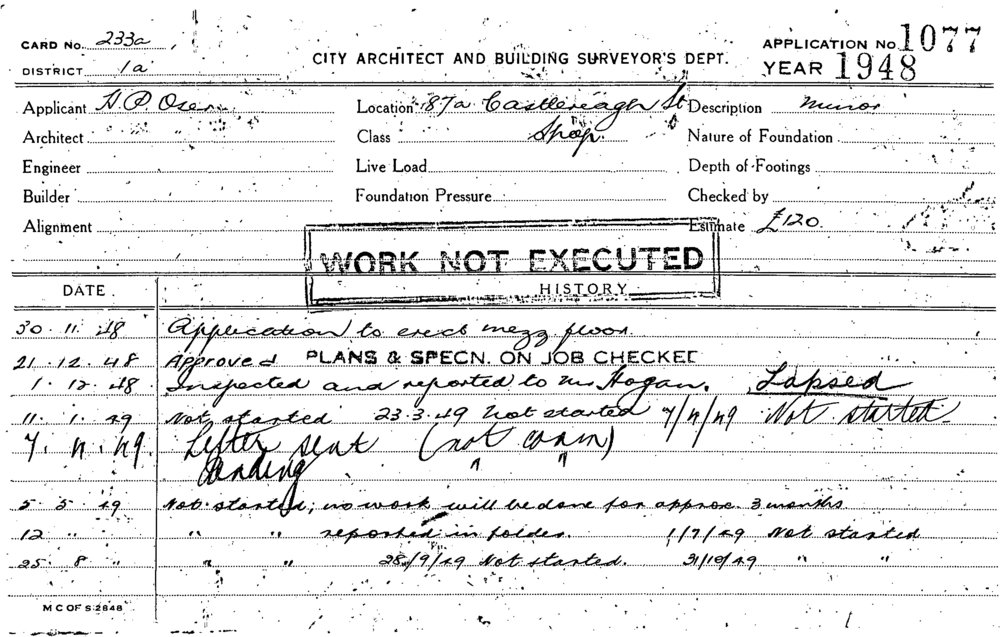 CARD No. 233a
DISTRICT 1a
CITY ARCHITECT AND BUILDING SURVEYOR'S DEPT.
APPLICATION No. 1077
YEAR 1948
Applicant H.P. Oser Location 187a Castlereagh St Description Minor
Architect Class Shop. Nature of Foundation
Engineer Live Load Depth of Footings
Builder Foundation Pressure Checked by
Alignment Estimate £120.
WORK NOT EXECUTED
DATE HISTORY
30.11.48 Application to erect mezz floor.
21.12.48 Approved PLANS & SPECN. ON JOB CHECKED
1.12.48 Inspected and reported to Mr Hogan. Lapsed
11.1.49 Not started 23.3.49 Not started 7/4/49 Not started
7.4.49. Letter sent (not comm)
Pending " "
5.5.49 Not started; no work will be done for approx. 3 months
12 " " " " reported in folder. 1/7/49 Not started
25.8 " " " 28/9/49 Not started. 31/10/49 " "
M C OF S 2848